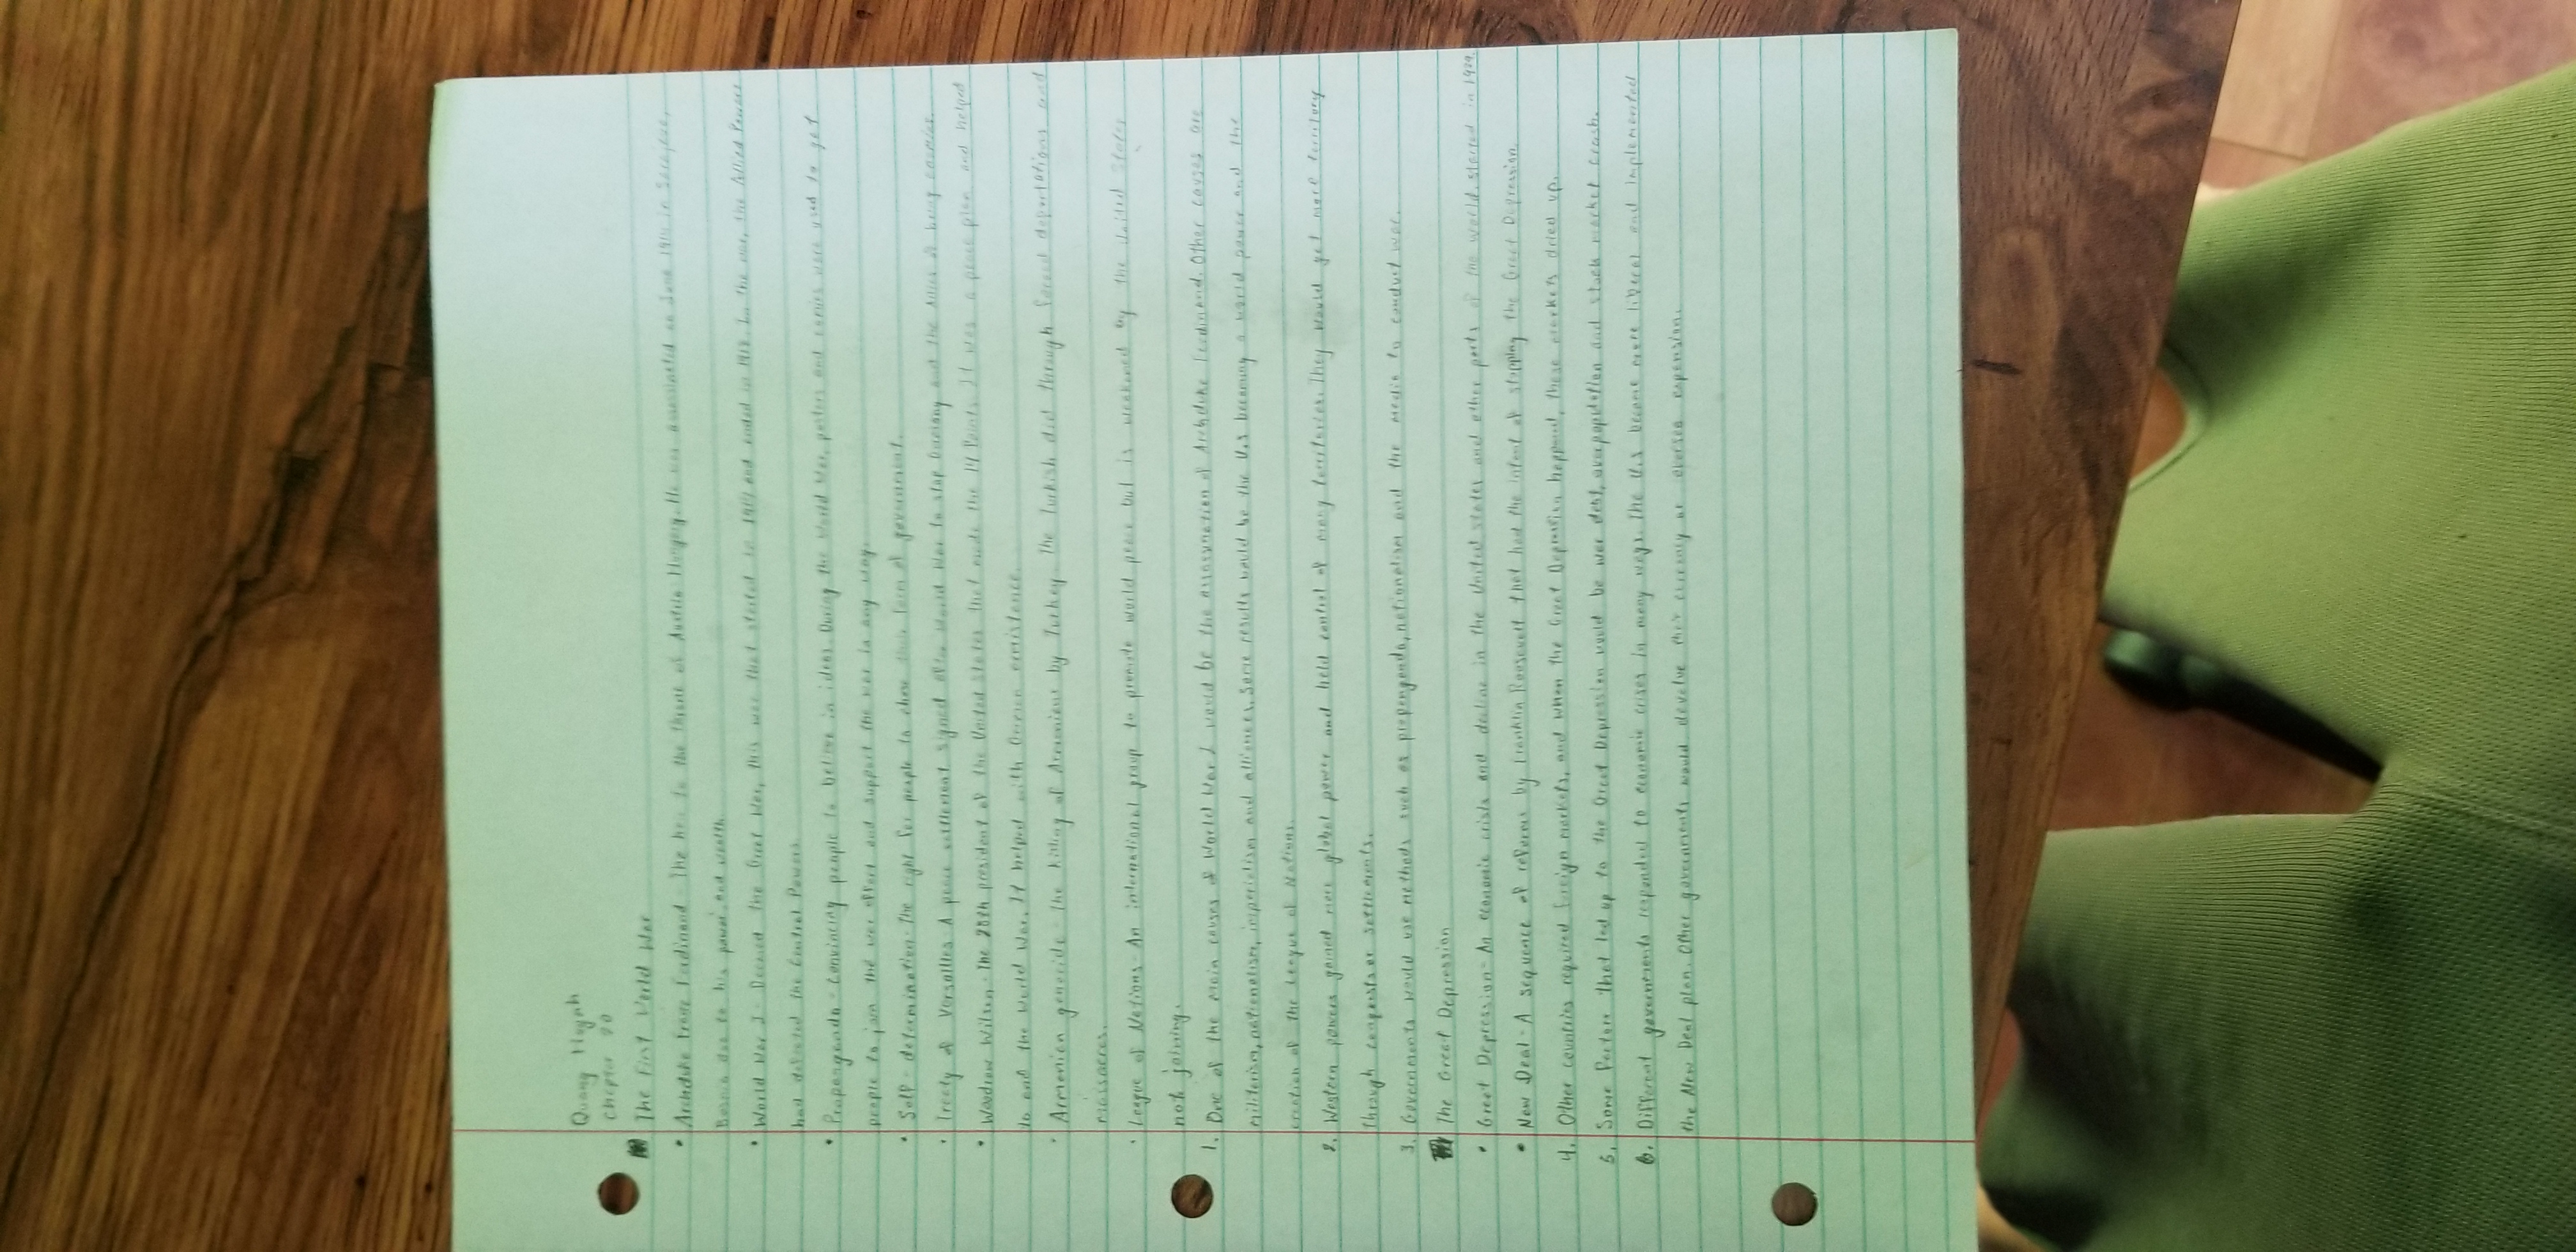 Quang Huynh
Chapter 20
The First World War
• Archduke Franz Ferdinand - The heir to the throne of Austria-Hungary. He was assassinated on June 1914 in Sarajevo,
Bosnia due to his power and wealth.
• World War I - Deemed the Great War, this war that started in 1914 and ended in 1918. In the war, the Allied Powers
had defeated the Central Powers.
• Propanganda - Convincing people to believe in ideas. During the World War, posters and comics were used to get
people to join the war effort and support the war in any way.
• Self-determination - The right for people to chose their form of government.
• Treaty of Versailles - A peace settlement signed after World War to stop Germany and the Allies of being enemies.
• Woodrow Wilson - The 28th president of the United States that made the 14 Points. It was a peace plan and helped
to end the World War. It helped with German
• Armenian genocide - The killing of Armenians by Turkey. The Turkish did through forced deportations and
massacres.
• League of Nations - An international group to promote world peace but is weakened by the United States
not joining.
1. One of the main causes of World War I would be the assassination of Archduke Ferdinand. Other causes are
militarism, nationalism, imperialism and alliances. Some results would be the U.S becoming a world power and the
creation of the League of Nations.
2. Western powers gained more global power and held control of many territories. They would get more territory
through conquests or settlements.
3. Governments would use methods such as propanganda, nationalism and the media to conduct war.
The Great Depression
• Great Depression - An economic crisis and decline in the United States and other parts of the world. started in 1929.
• New Deal - A sequence of reforms by Franklin Roosevelt that had the intent of stopping the Great Depression.
4. Other countries required foreign markets, and when the Great Depression happend, these markets dried up.
5. Some factors that led up to the Great Depression would be war debt, overpopulation and stock market crash.
6. Different governments responded to economic crises in many ways. The U.S became more liberal and implemented
the New Deal plan. Other governments would devalue their currency or oversea expansion.